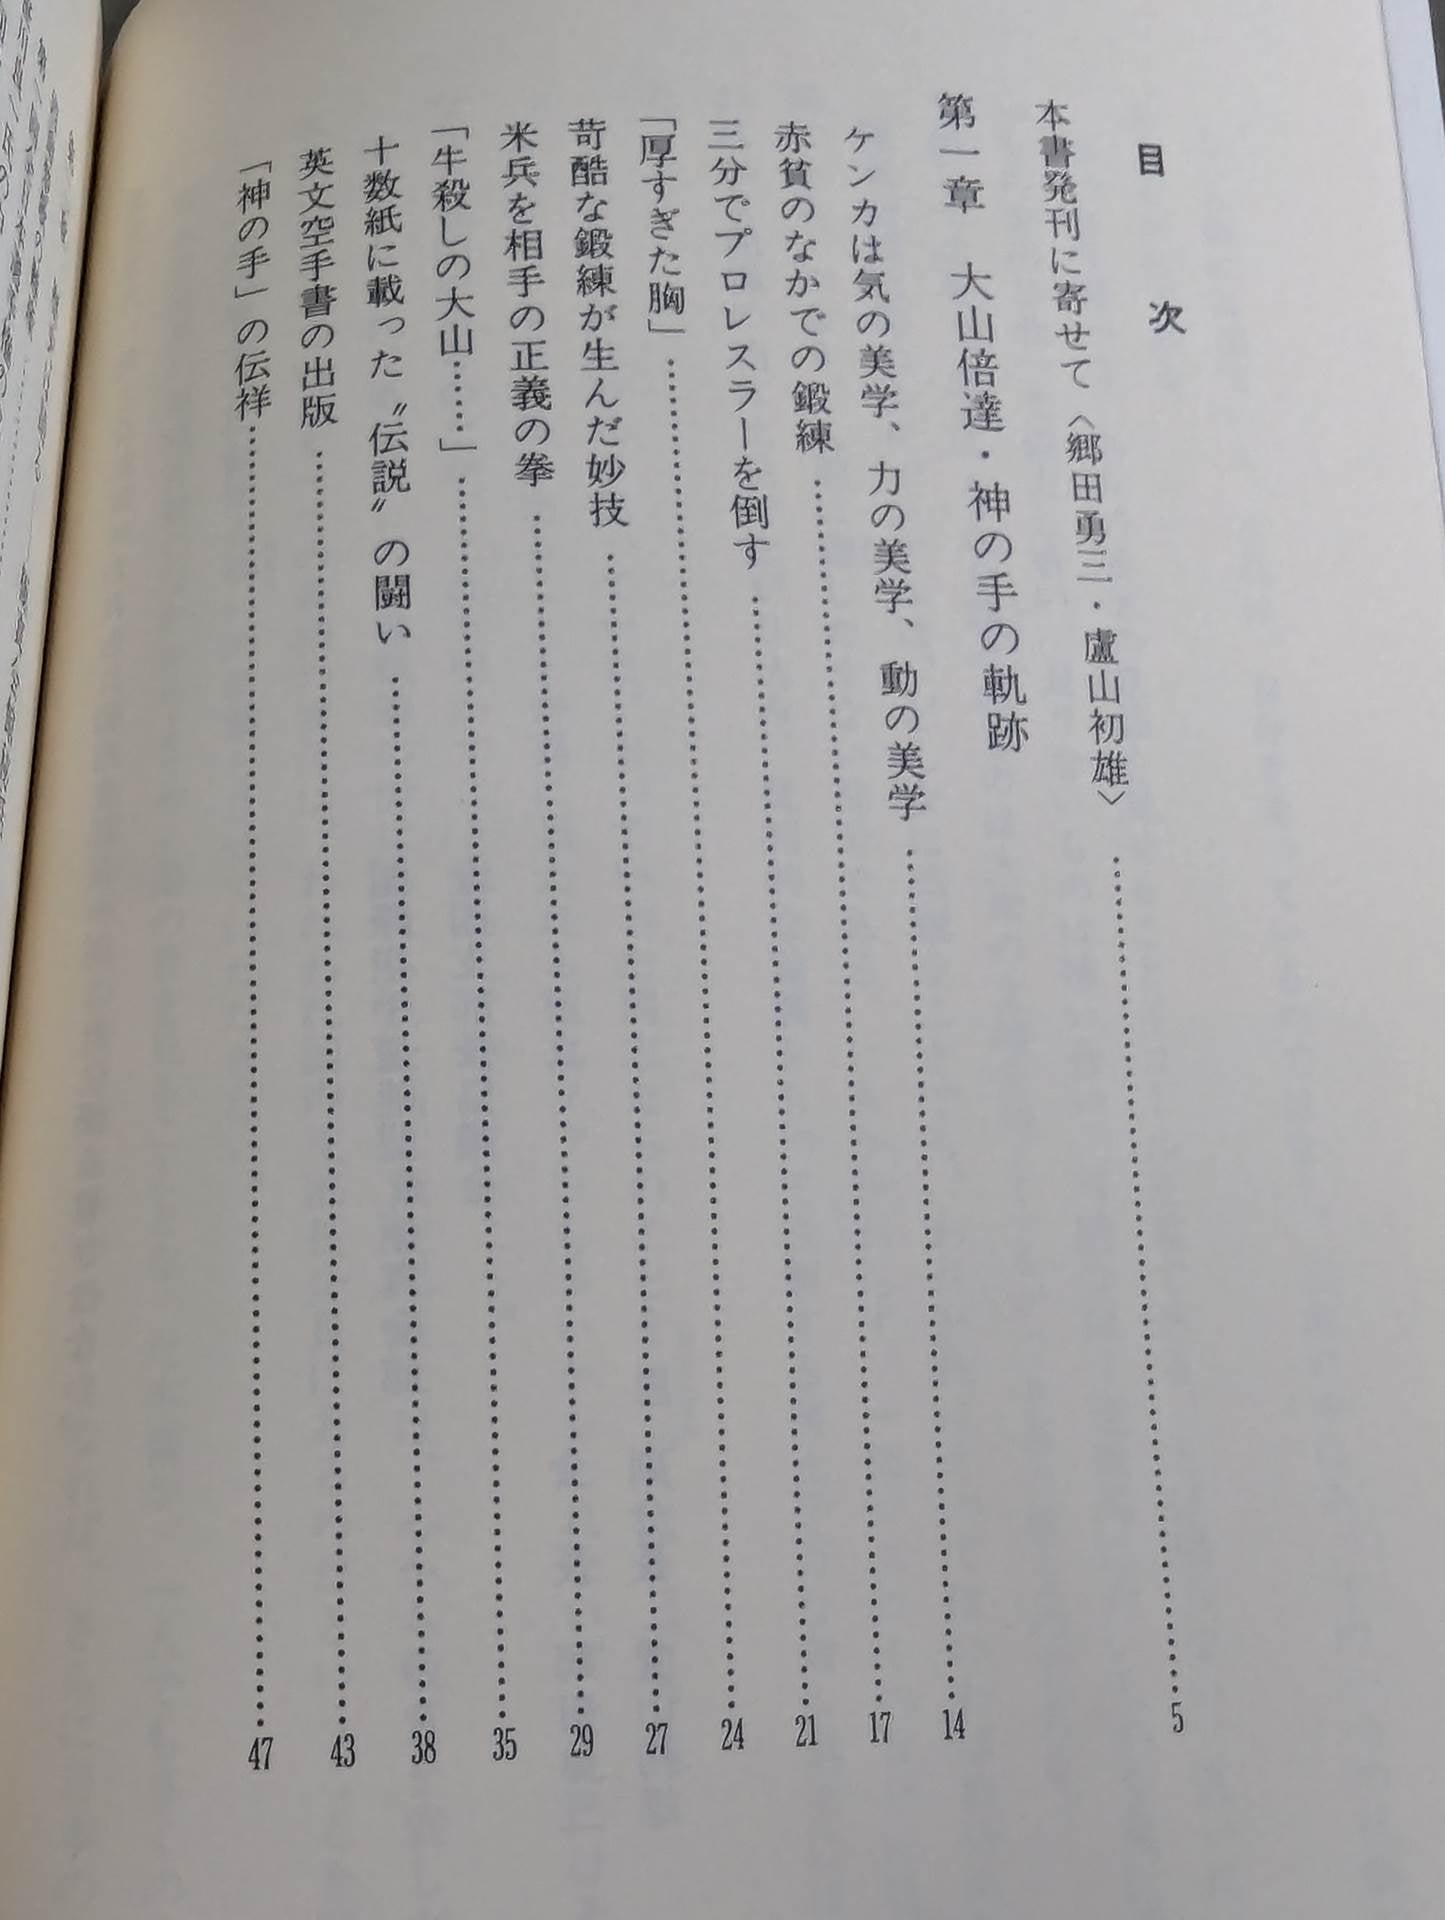 目次
本書発刊に寄せて〈郷田勇三・盧山初雄〉……5
第一章　大山倍達・神の手の軌跡
ケンカは気の美学、力の美学、動の美学……14
赤貧のなかでの鍛練……17
三分でプロレスラーを倒す……21
「厚すぎた胸」……24
苛酷な鍛練が生んだ妙技……27
米兵を相手の正義の拳……29
「牛殺しの大山……」……35
十数紙に載った〝伝説〟の闘い……38
英文空手書の出版……43
「神の手」の伝祥……47